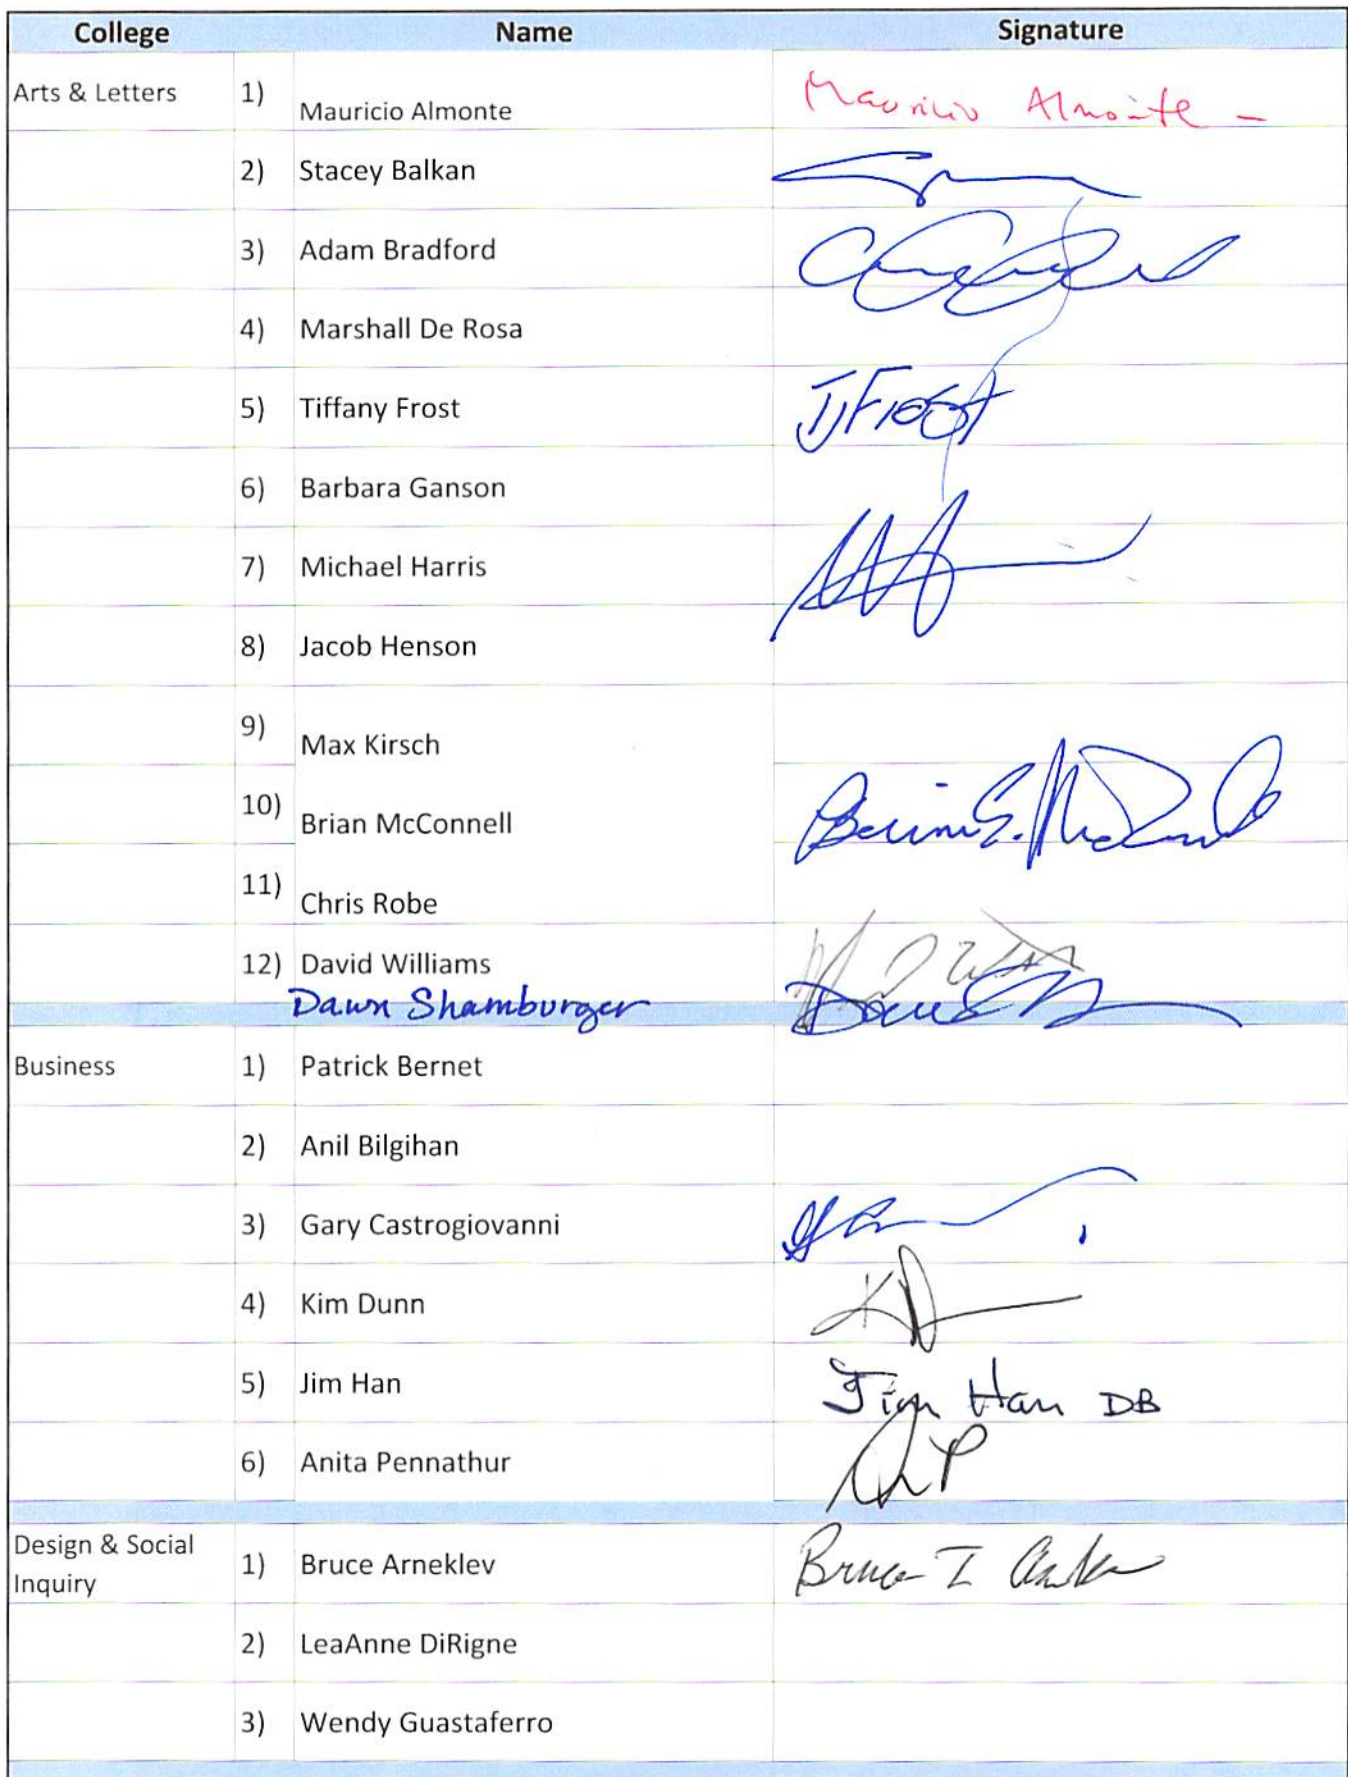 College Name Signature
Arts & Letters 1) Mauricio Almonte Mauricio Almonte -
2) Stacey Balkan
3) Adam Bradford
4) Marshall De Rosa
5) Tiffany Frost TJFrost
6) Barbara Ganson
7) Michael Harris
8) Jacob Henson
9) Max Kirsch
10) Brian McConnell
11) Chris Robe
12) David Williams
Dawn Shamburger
Business 1) Patrick Bernet
2) Anil Bilgihan
3) Gary Castrogiovanni
4) Kim Dunn
5) Jim Han Jim Han DB
6) Anita Pennathur
Design & Social
Inquiry 1) Bruce Arneklev Bruce I
2) LeaAnne DiRigne
3) Wendy Guastaferro